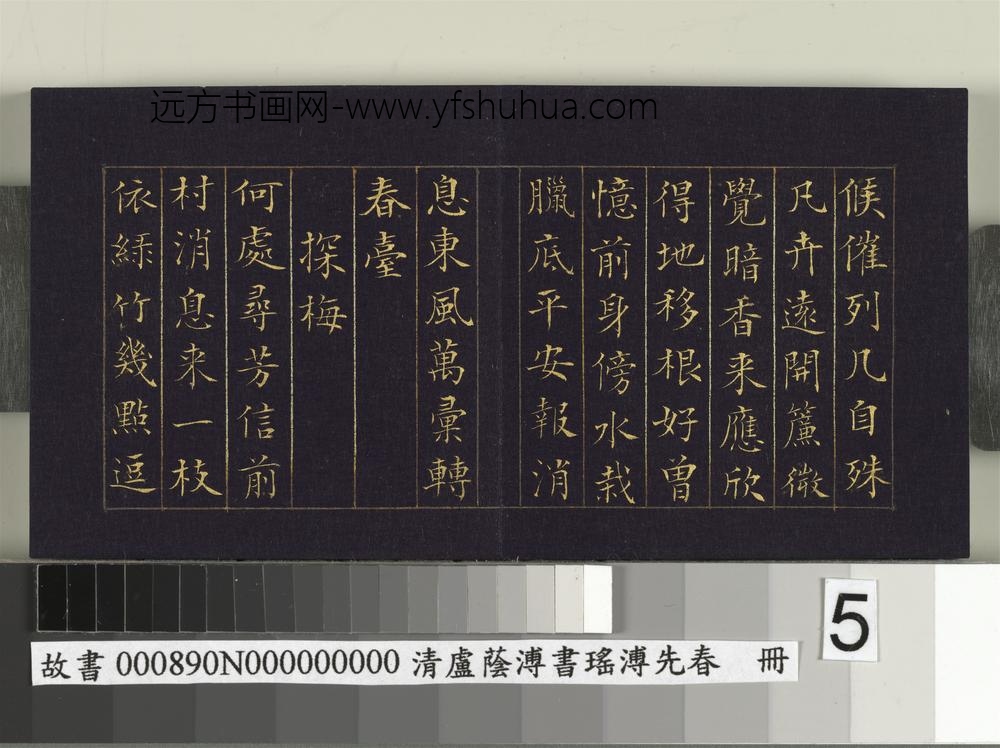 远方书画网-www.yfshuhua.com
候催列几自殊
凡卉遠開簾微
覺暗香来應欣
得地移根好曾
憶前身傍水栽
臘底平安報消
息東風萬彙轉
春臺
探梅
何處尋芳信前
村消息来一枝
依綠竹幾點逗
5
故書 000890N000000000 清盧蔭溥書瑤溥先春 冊